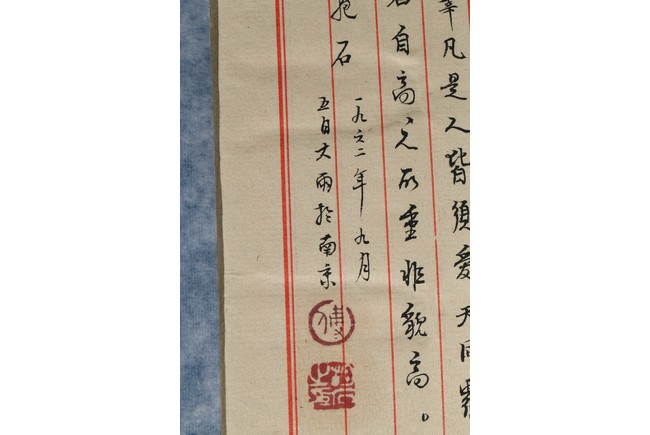 凡是人皆須愛天同覆
名自高人所重非貌高。
抱石
一九六二年九月
五日大雨於南京
傅